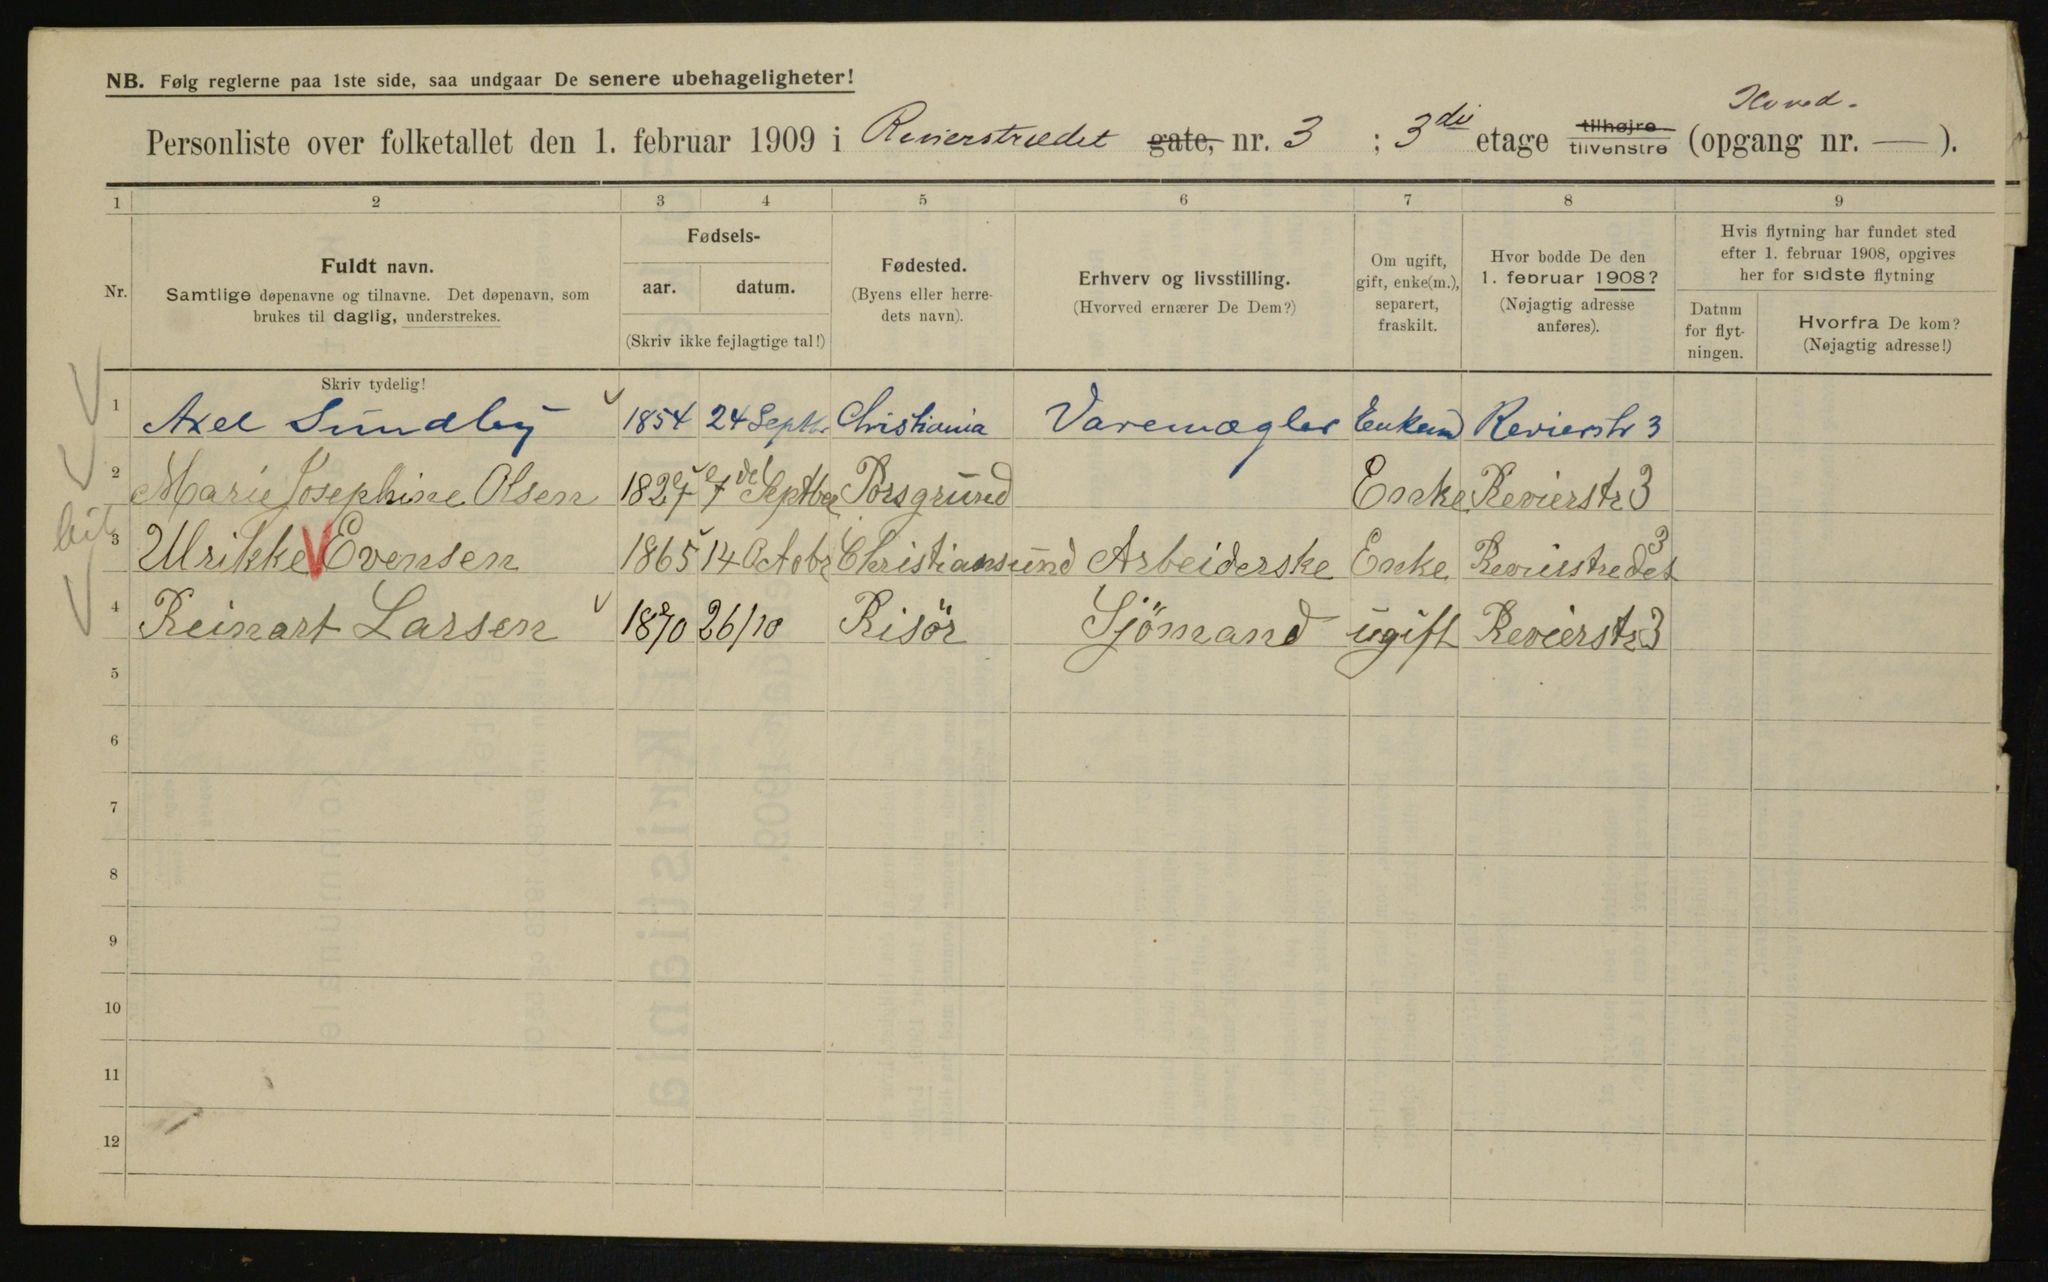 NB. Følg reglerne paa 1ste side, saa undgaar De senere ubehageligheter!
Hoved.
Personliste over folketallet den 1. februar 1909 i Revierstrædet gate, nr. 3 ; 3die etage tilhøjre tilvenstre (opgang nr. — ).
1 2 3 4 5 6 7 8 9
Nr.
Fuldt navn.
Samtlige døpenavne og tilnavne. Det døpenavn, som
brukes til daglig, understrekes.
Skriv tydelig!
Fødsels-
aar. datum.
(Skriv ikke fejlagtige tal!)
Fødested.
(Byens eller herre-
dets navn).
Erhverv og livsstilling.
(Hvorved ernærer De Dem?)
Om ugift,
gift, enke(m.),
separert,
fraskilt.
Hvor bodde De den
1. februar 1908?
(Nøjagtig adresse
anføres).
Hvis flytning har fundet sted
efter 1. februar 1908, opgives
her for sidste flytning
Datum
for flyt-
ningen.
Hvorfra De kom?
(Nøjagtig adresse!)
1 Axel Sundby 1854 24 Septbr Christiania Varemægler Enkem Revierstr 3
2 Marie Josephine Olsen 1827 7 Septber Porsgrund Enke Revierstr 3
3 Ulrikke Evensen 1865 14 Octobr Christiansund Arbeiderske Enke Revierstredet 3
4 Reinart Larsen 1870 26/10 Risör Sjömand ugift Revierstr 3
5
6
7
8
9
10
11
12